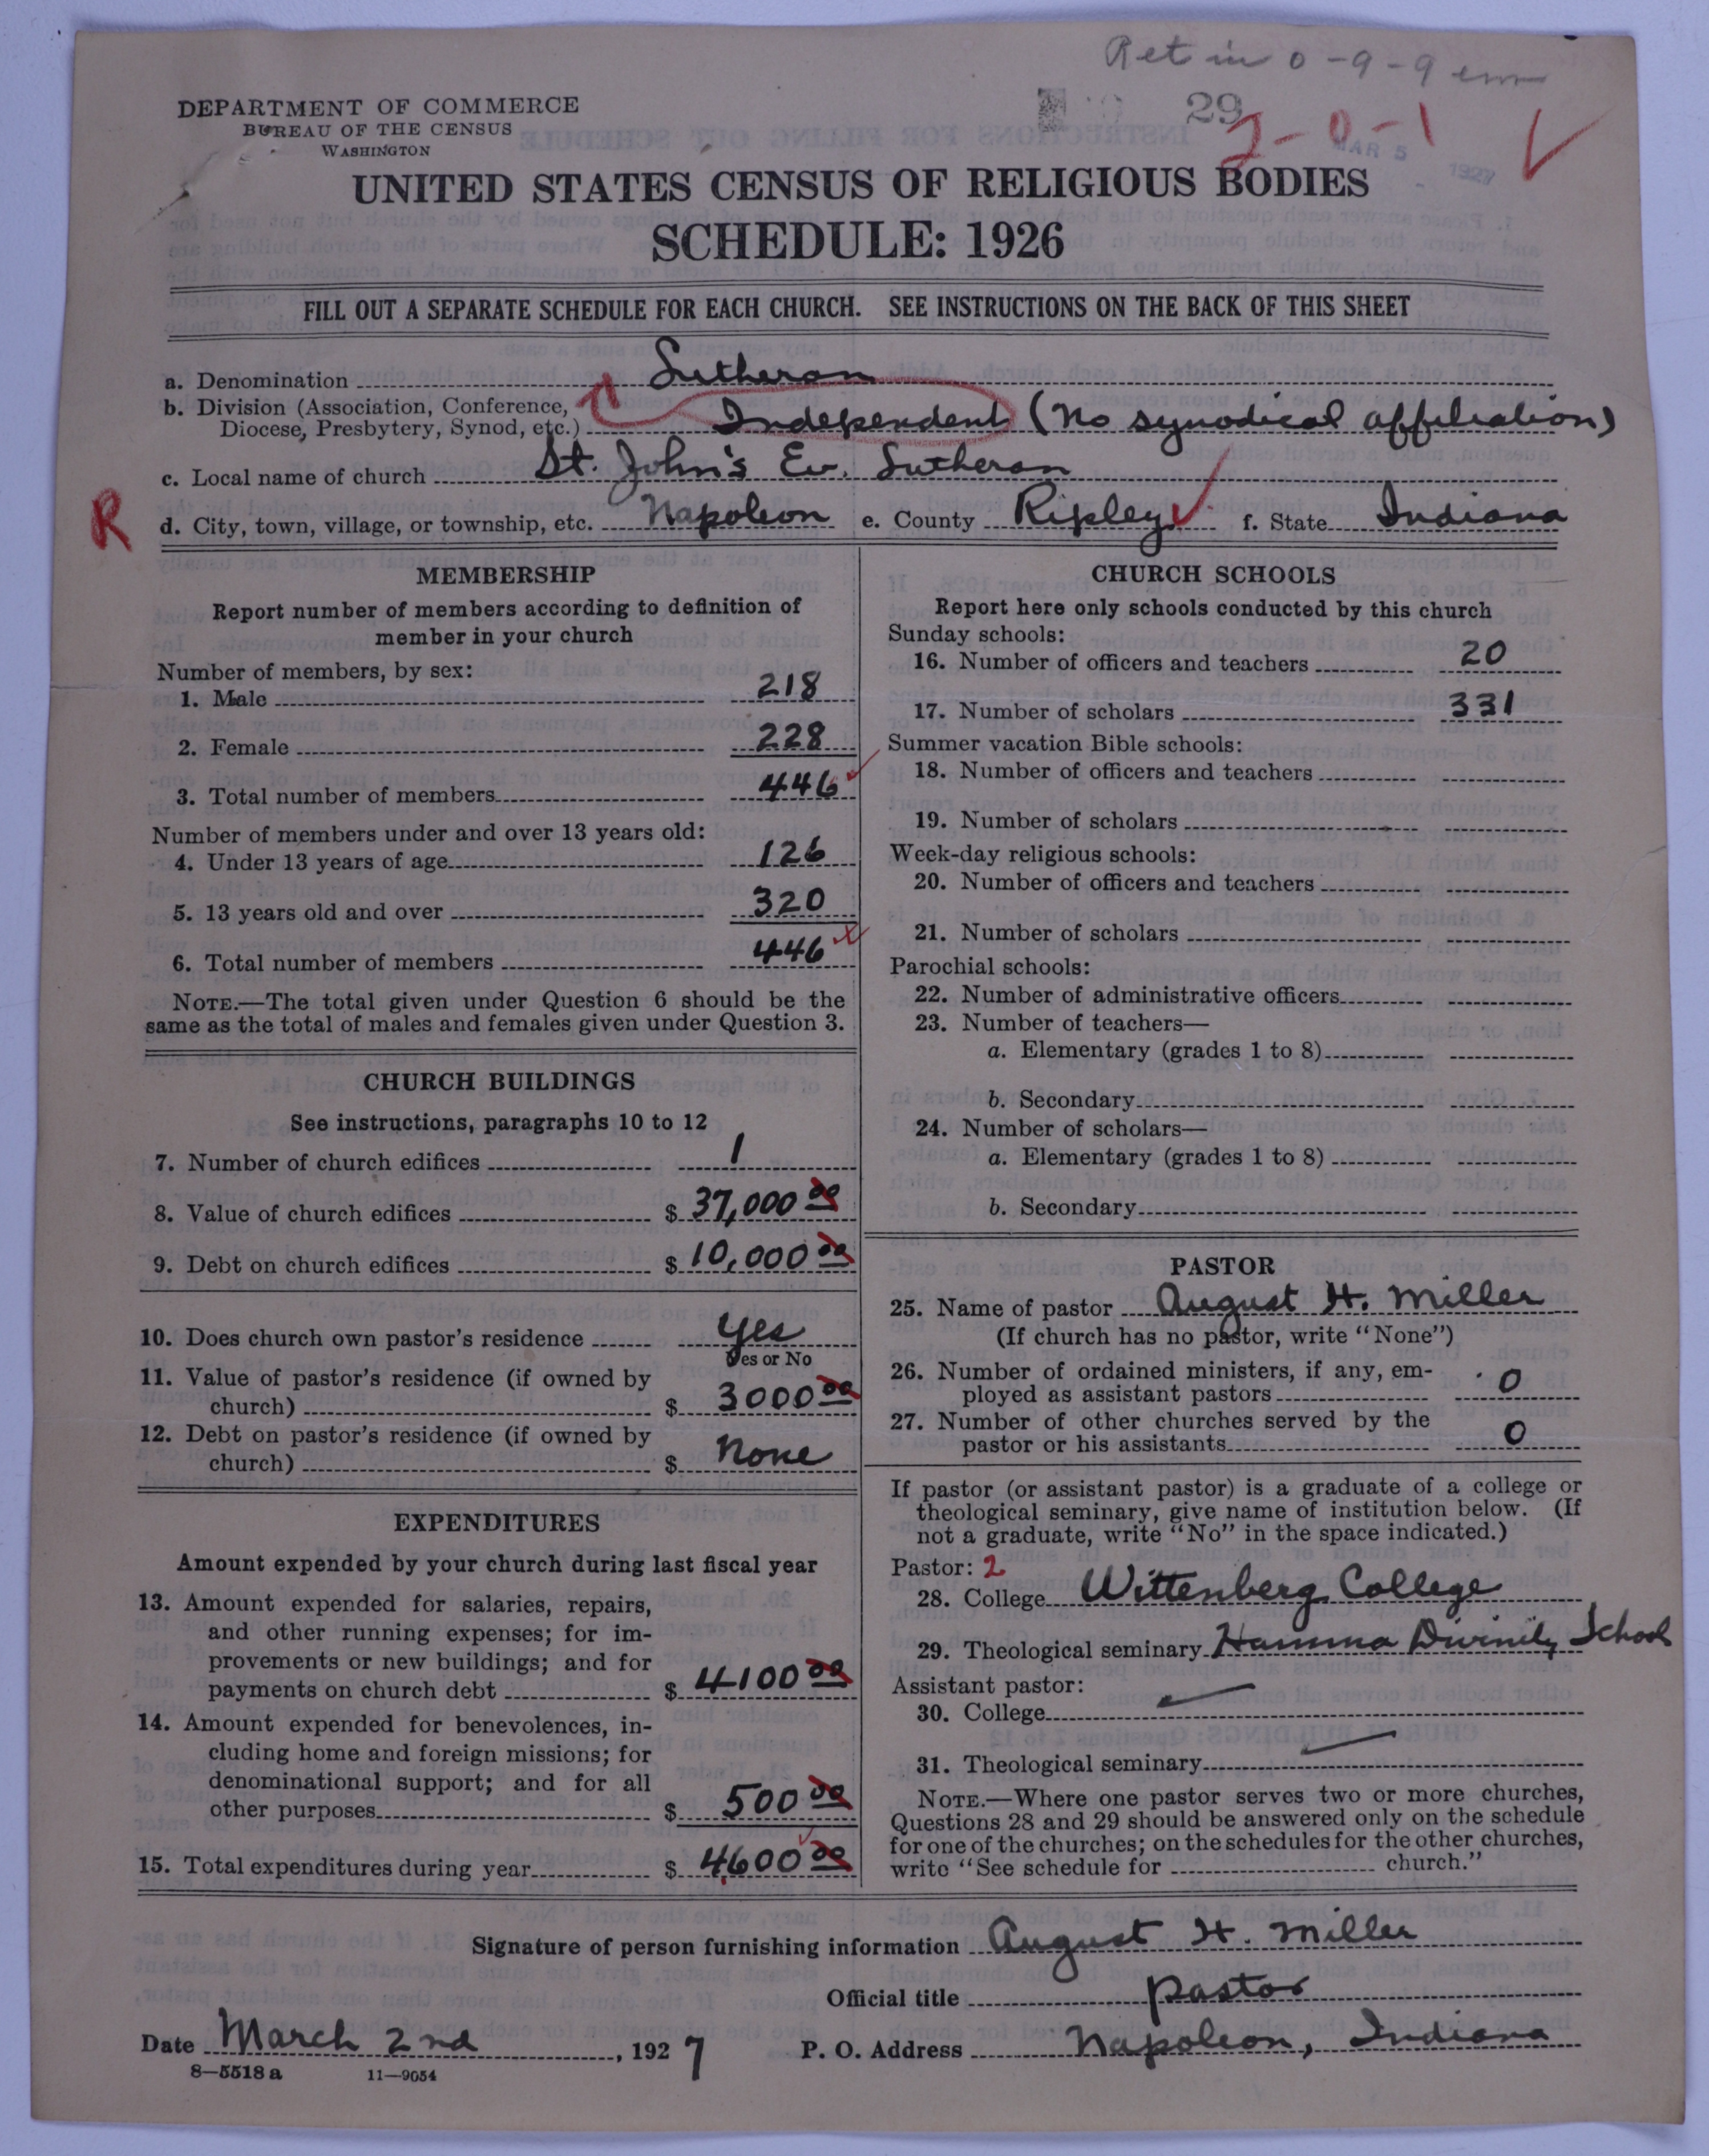 Ret in 0-9-9 em
29
2-0-1
MAR 5 1927
DEPARTMENT OF COMMERCE
BUREAU OF THE CENSUS
WASHINGTON
UNITED STATES CENSUS OF RELIGIOUS BODIES
SCHEDULE: 1926
FILL OUT A SEPARATE SCHEDULE FOR EACH CHURCH. SEE INSTRUCTIONS ON THE BACK OF THIS SHEET
a. Denomination Lutheran
b. Division (Association, Conference,
Diocese, Presbytery, Synod, etc.) Independent (No synodical affiliation)
c. Local name of church St. John's Ev. Lutheran
R
d. City, town, village, or township, etc. Napoleon e. County Ripley f. State Indiana
MEMBERSHIP
Report number of members according to definition of
member in your church
Number of members, by sex:
1. Male 218
2. Female 228
3. Total number of members 446
Number of members under and over 13 years old:
4. Under 13 years of age 126
5. 13 years old and over 320
6. Total number of members 446
NOTE.—The total given under Question 6 should be the
same as the total of males and females given under Question 3.
CHURCH BUILDINGS
See instructions, paragraphs 10 to 12
7. Number of church edifices 1
8. Value of church edifices $ 37,000 00
9. Debt on church edifices $ 10,000 00
10. Does church own pastor's residence yes
Yes or No
11. Value of pastor's residence (if owned by
church) $ 3000 00
12. Debt on pastor's residence (if owned by
church) $ None
EXPENDITURES
Amount expended by your church during last fiscal year
13. Amount expended for salaries, repairs,
and other running expenses; for im-
provements or new buildings; and for
payments on church debt $ 4100 00
14. Amount expended for benevolences, in-
cluding home and foreign missions; for
denominational support; and for all
other purposes $ 500 00
15. Total expenditures during year $ 4600 00
CHURCH SCHOOLS
Report here only schools conducted by this church
Sunday schools:
16. Number of officers and teachers 20
17. Number of scholars 331
Summer vacation Bible schools:
18. Number of officers and teachers
19. Number of scholars
Week-day religious schools:
20. Number of officers and teachers
21. Number of scholars
Parochial schools:
22. Number of administrative officers
23. Number of teachers—
a. Elementary (grades 1 to 8)
b. Secondary
24. Number of scholars—
a. Elementary (grades 1 to 8)
b. Secondary
PASTOR
25. Name of pastor August H. Miller
(If church has no pastor, write "None")
26. Number of ordained ministers, if any, em-
ployed as assistant pastors 0
27. Number of other churches served by the
pastor or his assistants 0
If pastor (or assistant pastor) is a graduate of a college or
theological seminary, give name of institution below. (If
not a graduate, write "No" in the space indicated.)
Pastor: 2
28. College Wittenberg College
29. Theological seminary Hamma Divinity School
Assistant pastor:
30. College
31. Theological seminary
NOTE.—Where one pastor serves two or more churches,
Questions 28 and 29 should be answered only on the schedule
for one of the churches; on the schedules for the other churches,
write "See schedule for church."
Signature of person furnishing information August H. Miller
Official title pastor
Date March 2nd, 1927 P. O. Address Napoleon, Indiana
8—5518 a 11—9054